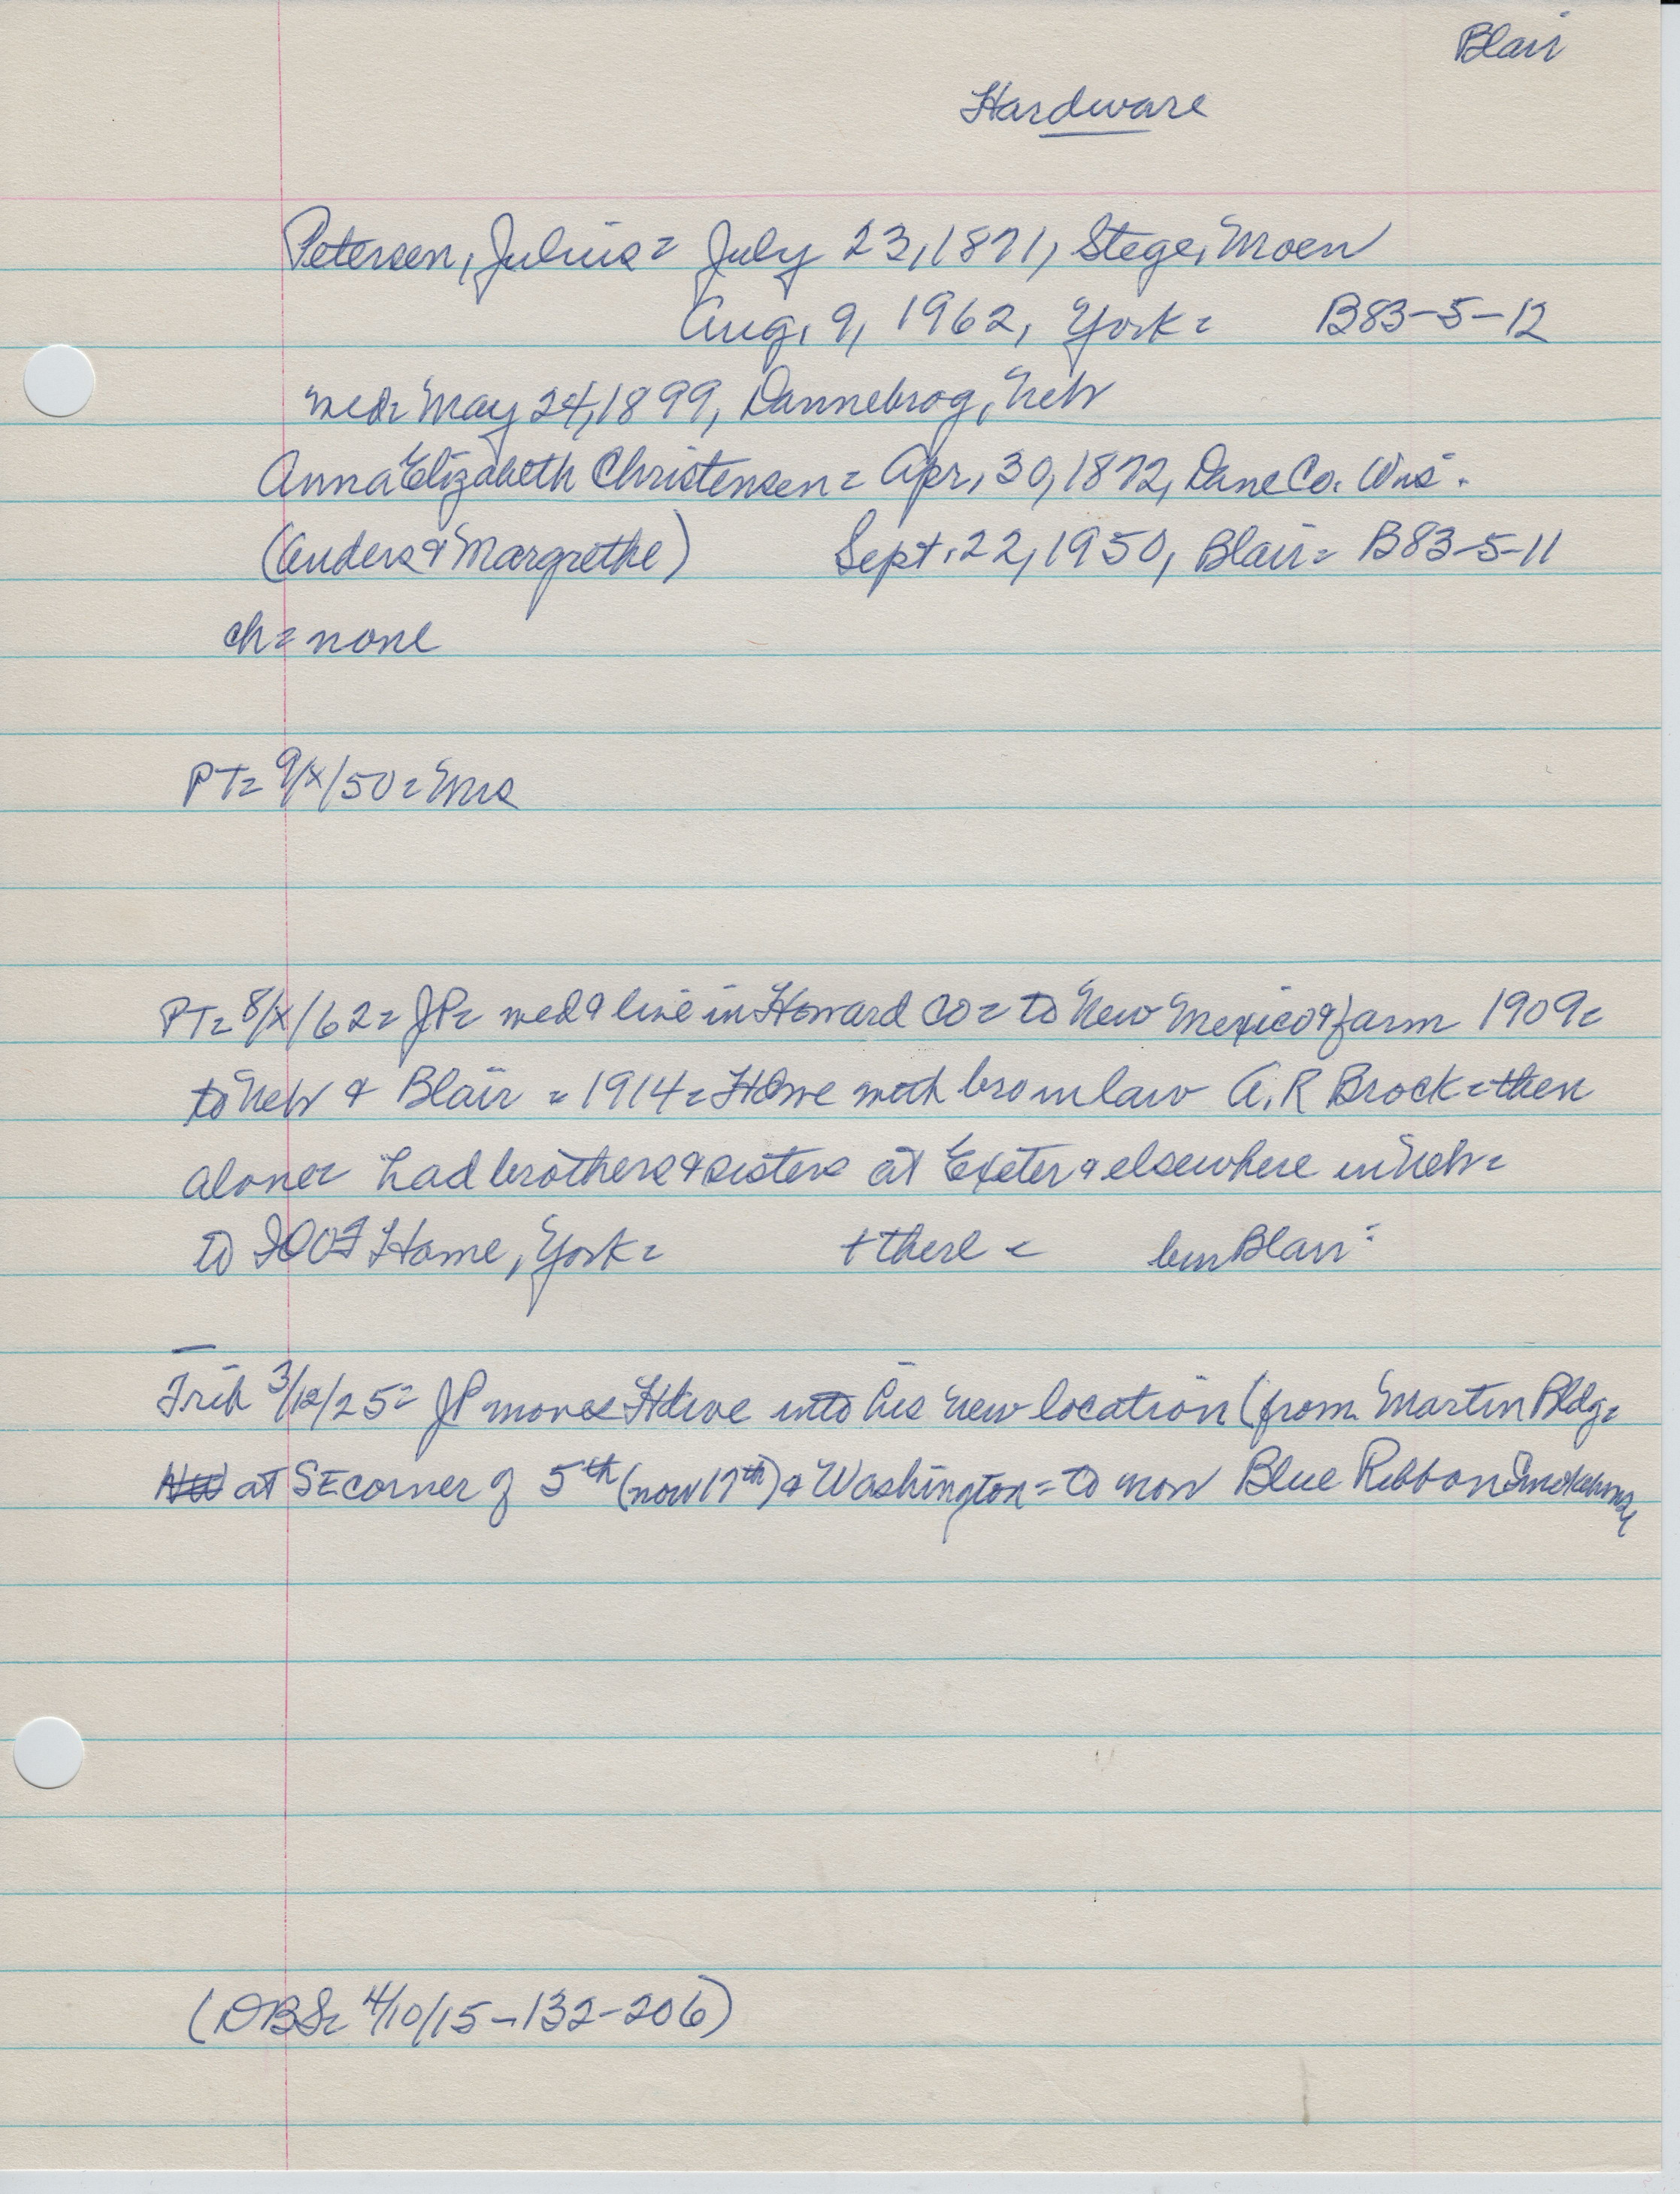 Blair
Hardware
Petersen, Julius = July 23, 1871, Stege, Moen
Aug. 9, 1962, York = B83-5-12
med = May 24, 1899, Dannebrog, Neb
Anna Elizabeth Christensen = Apr. 30, 1872, Dane Co. Wis.
(Anders & Margrethe) Sept. 22, 1950, Blair = B83-5-11
ch = none
PT = 9/x/50 = Mrs
PT = 8/x/62 = JP = med & live in Howard Co = to New Mexico & farm 1909 =
to Neb & Blair = 1914 = Hdwe with bro in law A.R Brock = then
alone = had brothers & sisters at Exeter & elsewhere in Neb =
to IOOF Home, York = + there = bur Blair =
Trib 3/12/25 = JP moves Hdwe into his new location (from Martin Bldg =
at SE corner of 5th (now 17th) & Washington = to now Blue Ribbon
(DBS = 4/10/15-132-206)